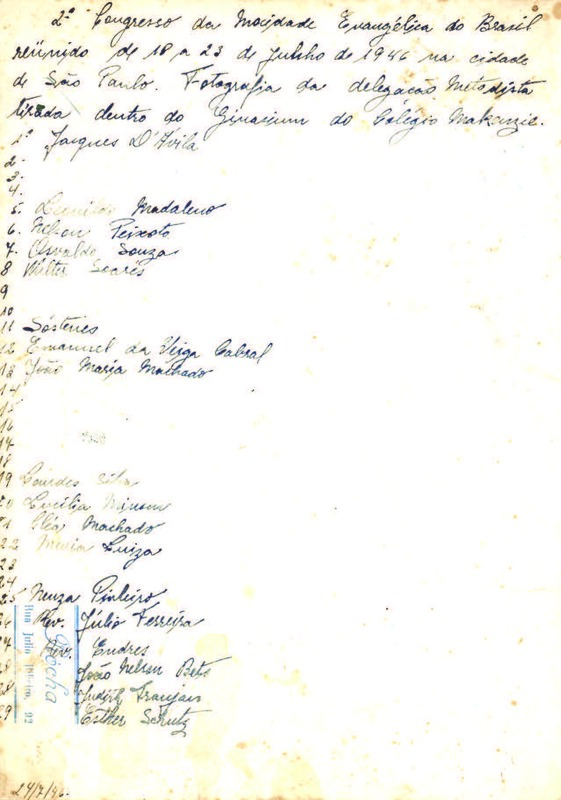 2º Congresso da Mocidade Evangélica do Brasil
reünido de 18 a 23 de Julho de 1946 na cidade
de São Paulo. Fotografia da delegação Metodista
tirada dentro do Ginasium do Colégio Makenzie.
1º Jacques D'Avila
2.
3.
4.
5. Madaleno
6. Nelson Peixoto
7. Osvaldo Souza
8 Wilter Soares
9
10
11 Sóstenes
12 Emanuel da Veiga Cabral
13 João Maria Machado
14
15
16
17
18
19 Lourdes Silva
20 Cecilia
21 Cléa Machado
22 Maria Luiza
23
24
25 Neuza Pinheiro
26 Rev. Júlio Ferreira
27 Rev. Endres
28 João Nelson Bets
28 Judith
29 Esther Schutz
Rocha
Rua Julio Ribeiro, 92
24/7/46.